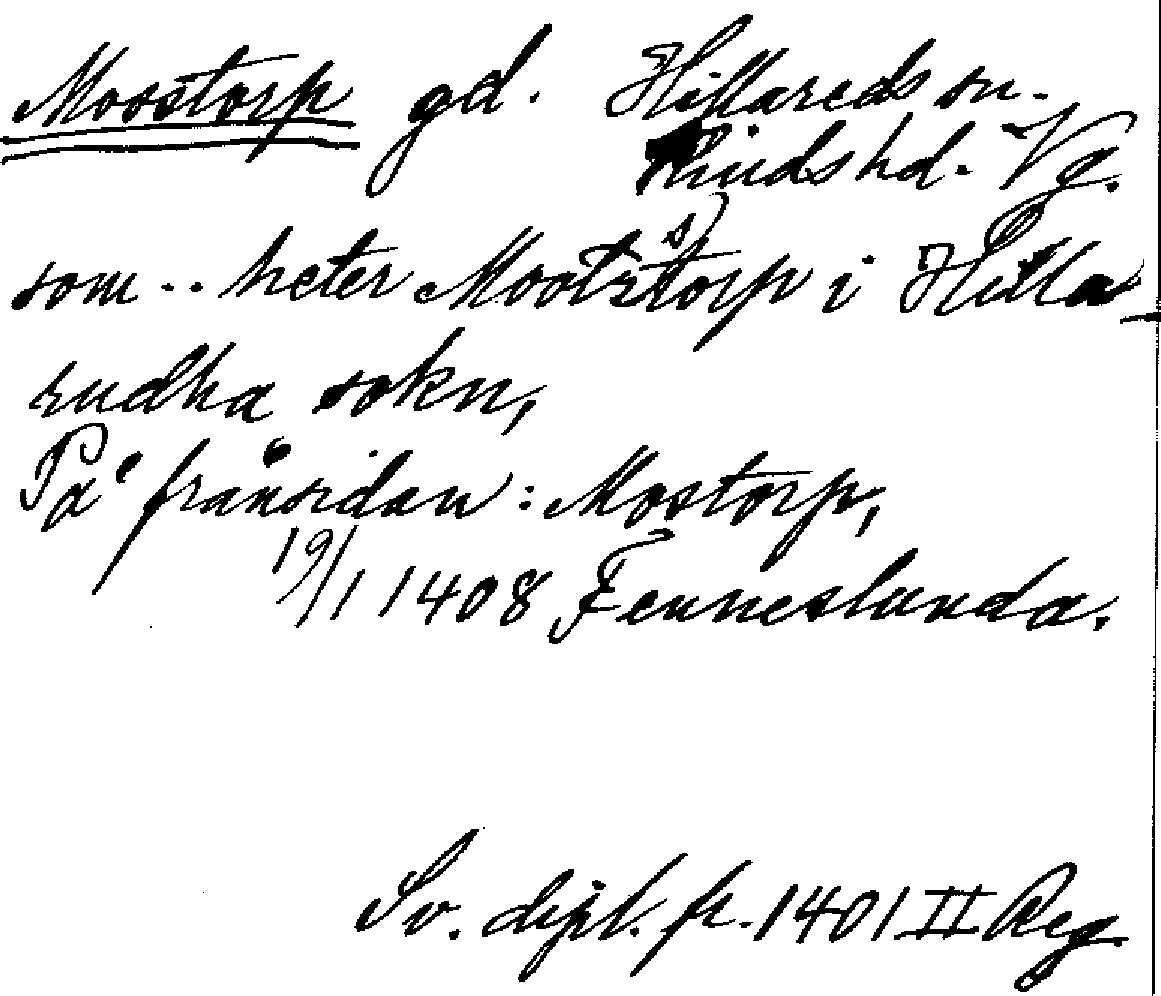 Mosstorp gd. Hillareds sn.
Kinds hd. Vg.
som .. heter Mootzstorp i Hilla-
rudha sokn,
På frånsidan: Mostorp,
19/1 1408 Fenneslunda.
Sv. dipl. fr. 1401 II Reg.